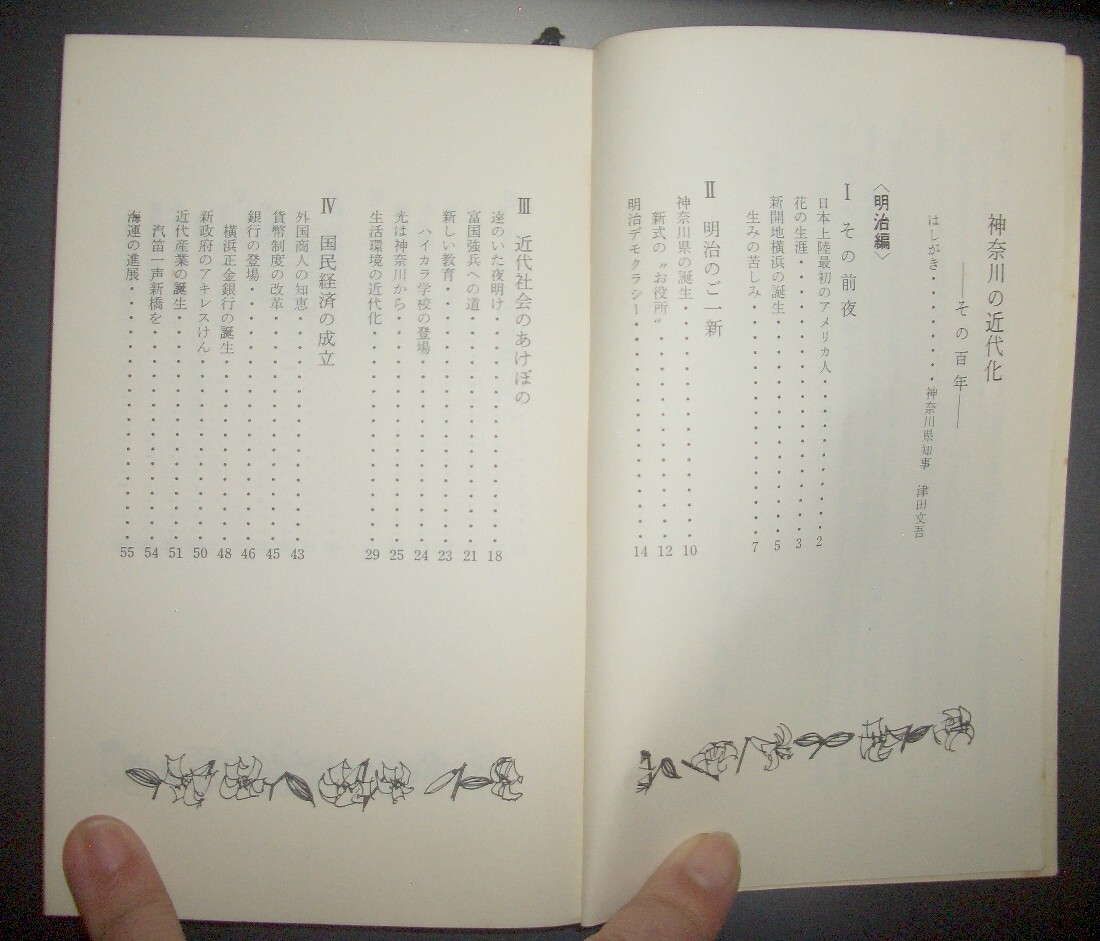 神奈川の近代化
――その百年――
はしがき・・・・・・・・神奈川県知事 津田文吾
〈明治編〉
Ⅰ その前夜
日本上陸最初のアメリカ人・・・・・・・・2
花の生涯・・・・・・・・・・・・・3
新開地横浜の誕生・・・・・・・・・・5
生みの苦しみ・・・・・・・・・・・・7
Ⅱ 明治のご一新
神奈川県の誕生・・・・・・・・・・・10
新式の〝お役所〟・・・・・・・・・・12
明治デモクラシー・・・・・・・・・・14
Ⅲ 近代社会のあけぼの
遠のいた夜明け・・・・・・・・・・・18
富国強兵への道・・・・・・・・・・・21
新しい教育・・・・・・・・・・・・・23
ハイカラ学校の登場・・・・・・・・・24
光は神奈川から・・・・・・・・・・・25
生活環境の近代化・・・・・・・・・・29
Ⅳ 国民経済の成立
外国商人の知恵・・・・・・・・・・・43
貨幣制度の改革・・・・・・・・・・・45
銀行の登場・・・・・・・・・・・・・46
横浜正金銀行の誕生・・・・・・・・・48
新政府のアキレスけん・・・・・・・・50
近代産業の誕生・・・・・・・・・・・51
汽笛一声新橋を・・・・・・・・・・・54
海運の進展・・・・・・・・・・・・・55